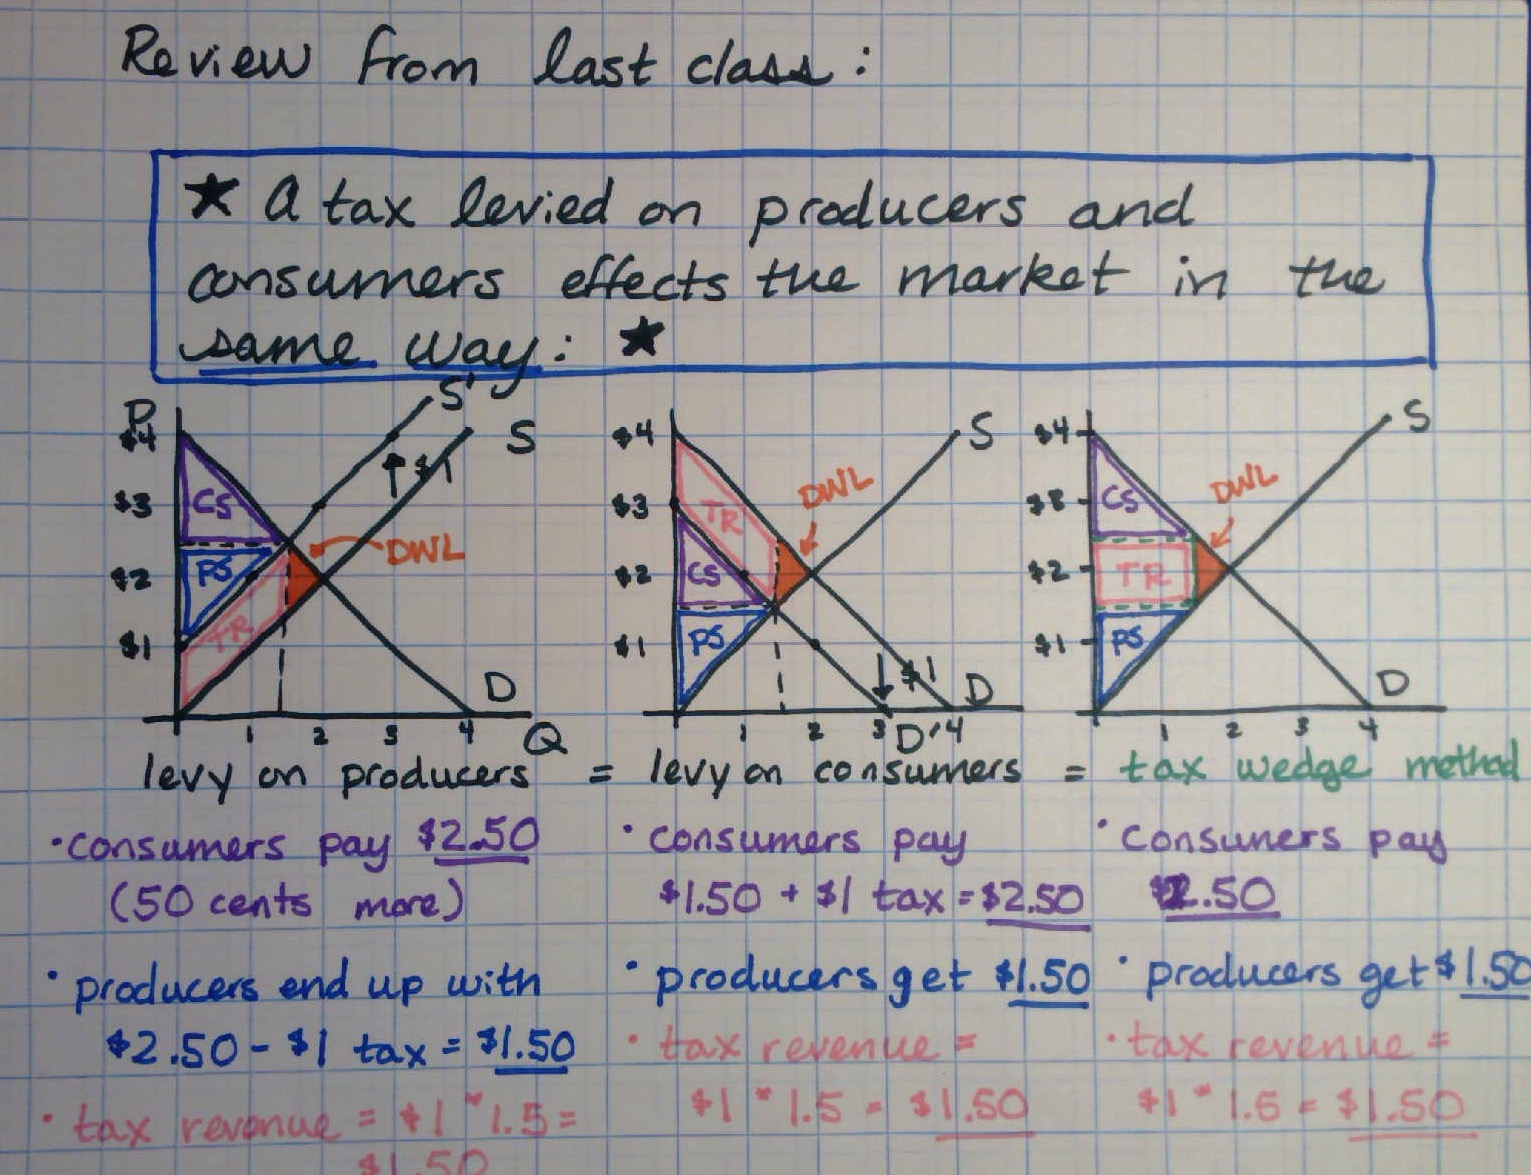 Review from last class:
★ A tax levied on producers and
consumers effects the market in the
same way: ★
P
$4
$3
$2
$1
S'
S
↑$1
CS
PS
TR
DWL
D
1 2 3 4 Q
$4
$3
$2
$1
S
DWL
TR
CS
PS
↓$1
D
1 2 3 D' 4
$4
$3
$2
$1
S
DWL
CS
TR
PS
D
1 2 3 4
levy on producers = levy on consumers = tax wedge method
• consumers pay $2.50
(50 cents more)
• producers end up with
$2.50 - $1 tax = $1.50
• tax revenue = $1 * 1.5 =
$1.50
• consumers pay
$1.50 + $1 tax = $2.50
• producers get $1.50
• tax revenue =
$1 * 1.5 = $1.50
• consumers pay
$2.50
• producers get $1.50
• tax revenue =
$1 * 1.5 = $1.50